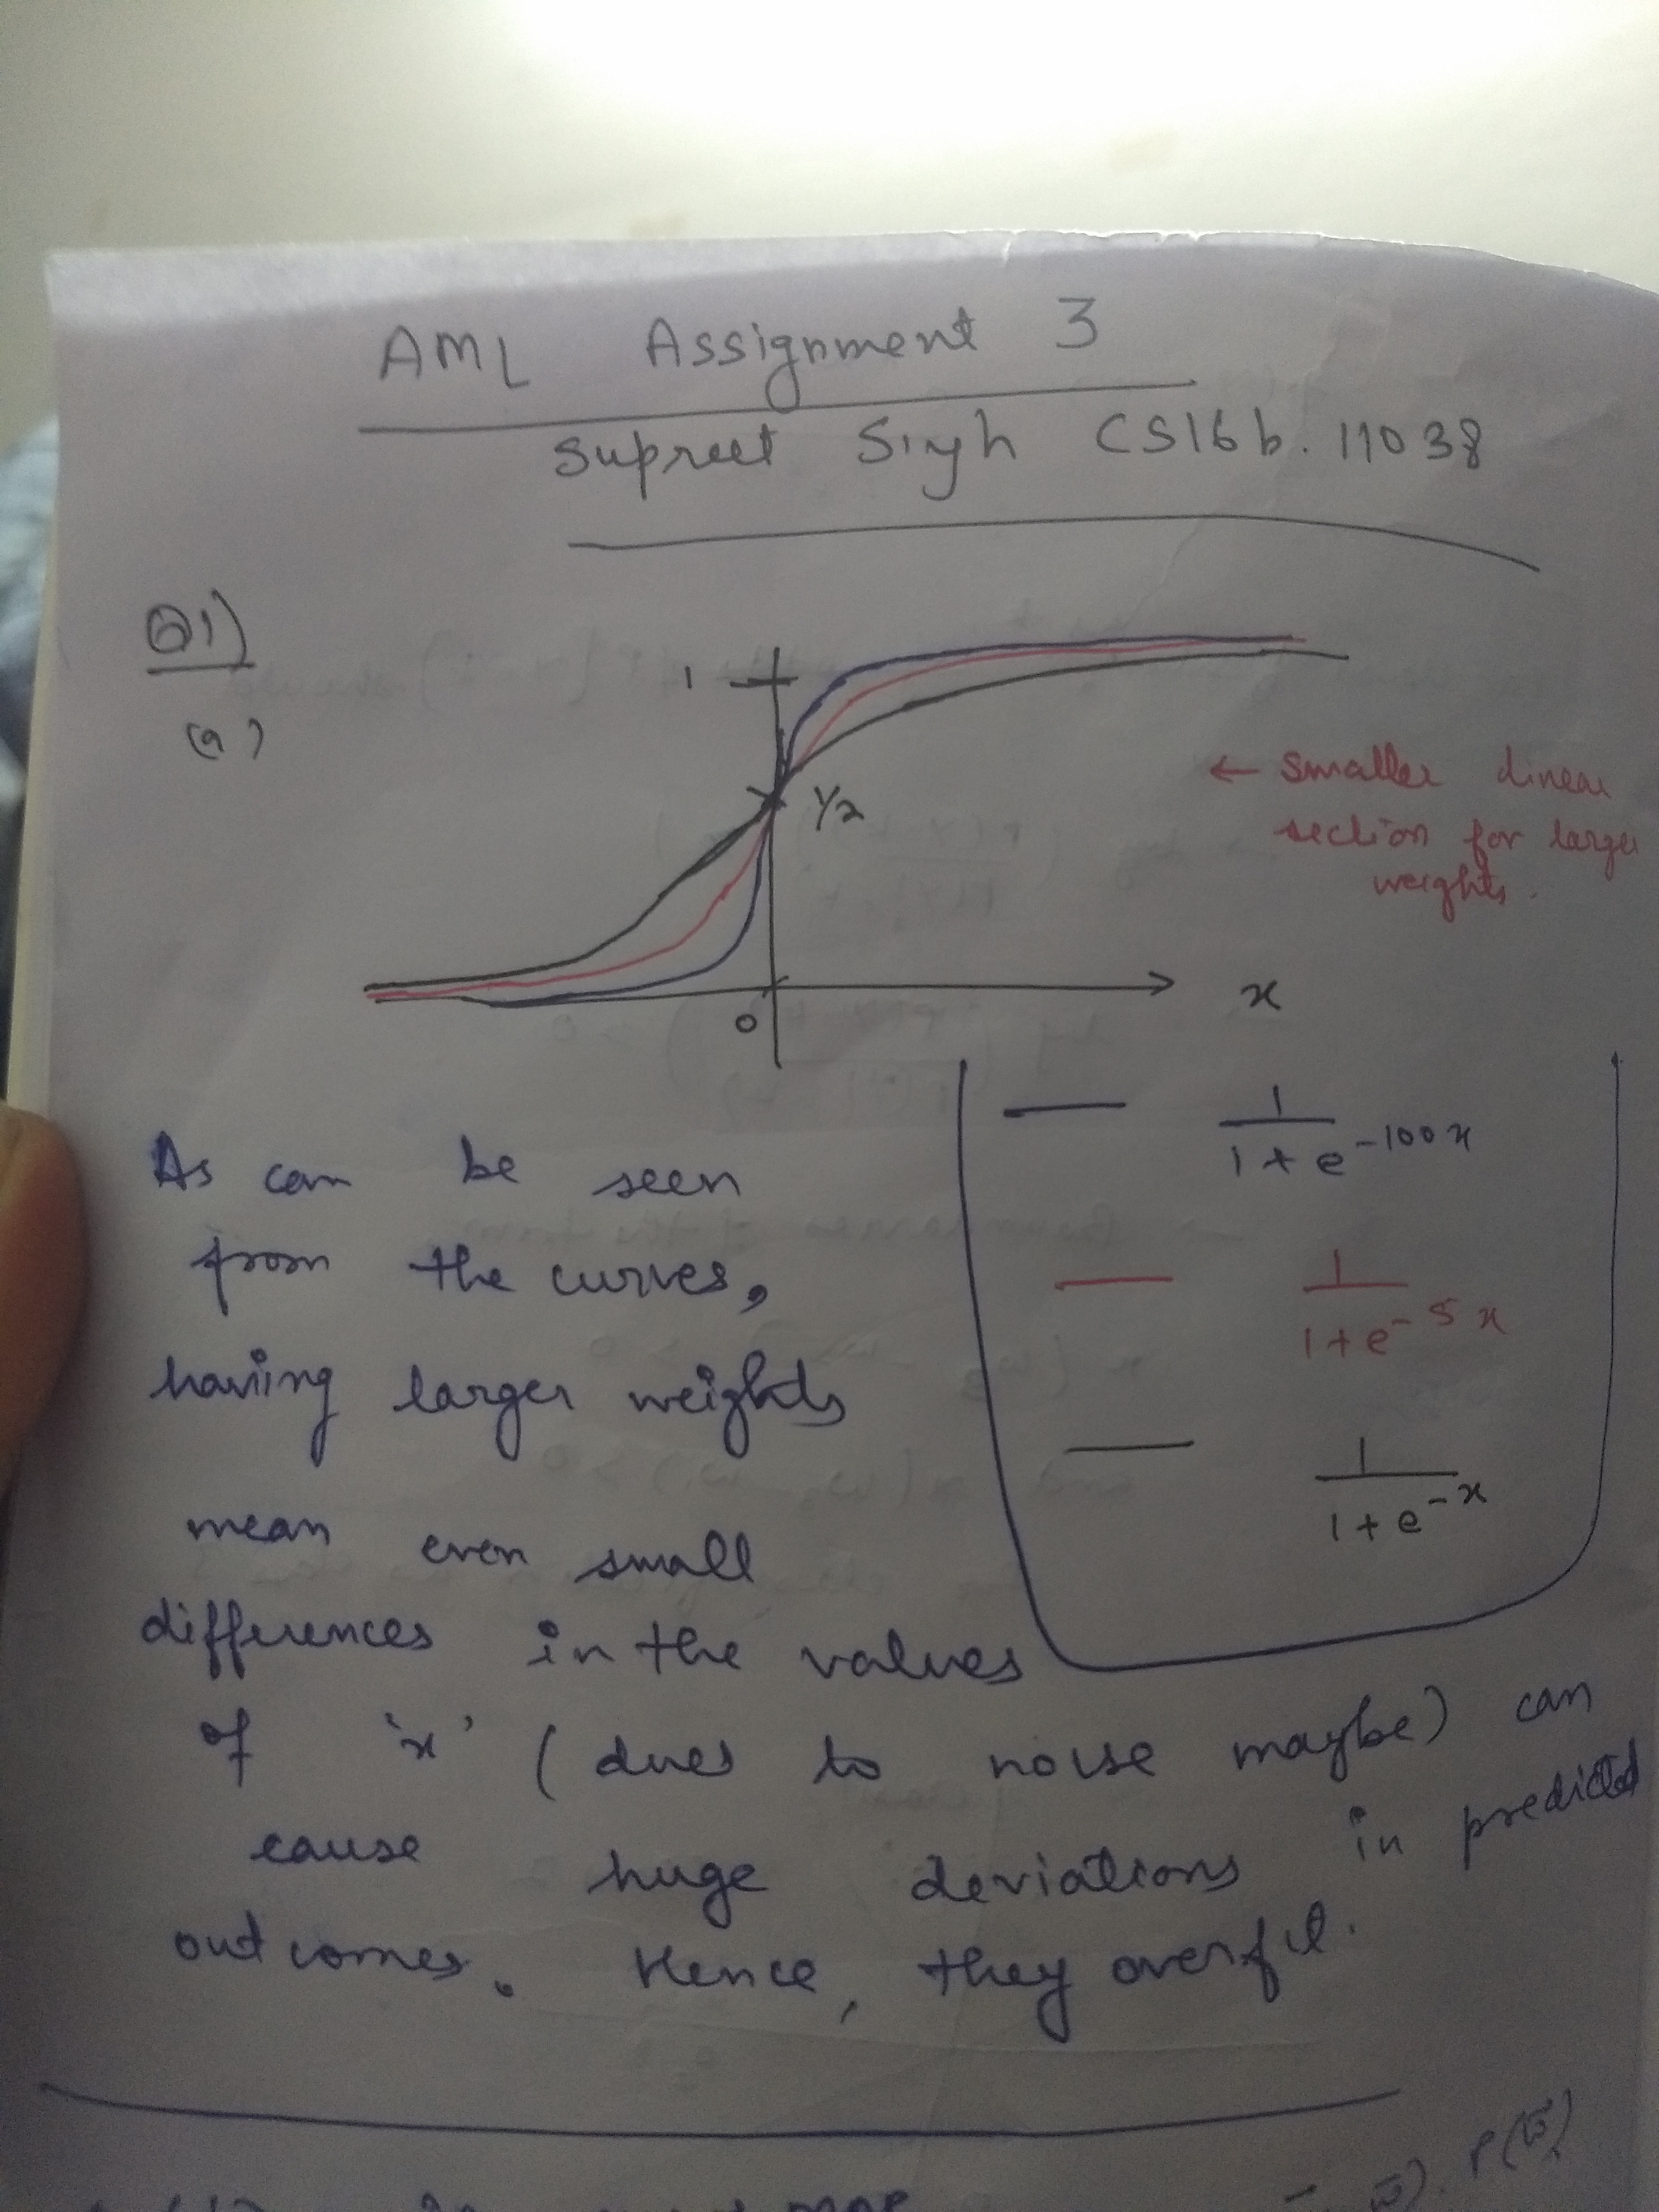 AML Assignment 3
Supreet Singh CS16b.11038
Q1)
(a)
1
1/2
← smaller linear
section for large
weights.
x
0
1 / 1 + e^-100x
1 / 1 + e^-5x
1 / 1 + e^-x
As can be seen
from the curves,
having larger weights
mean even small
differences in the values
of 'x' (dues to noise maybe) can
cause huge deviations in predicted
outcomes. Hence, they overfit.
P(w̄)